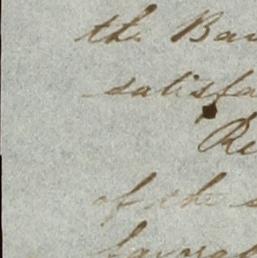 the Ba
satisfa
Re
of the s